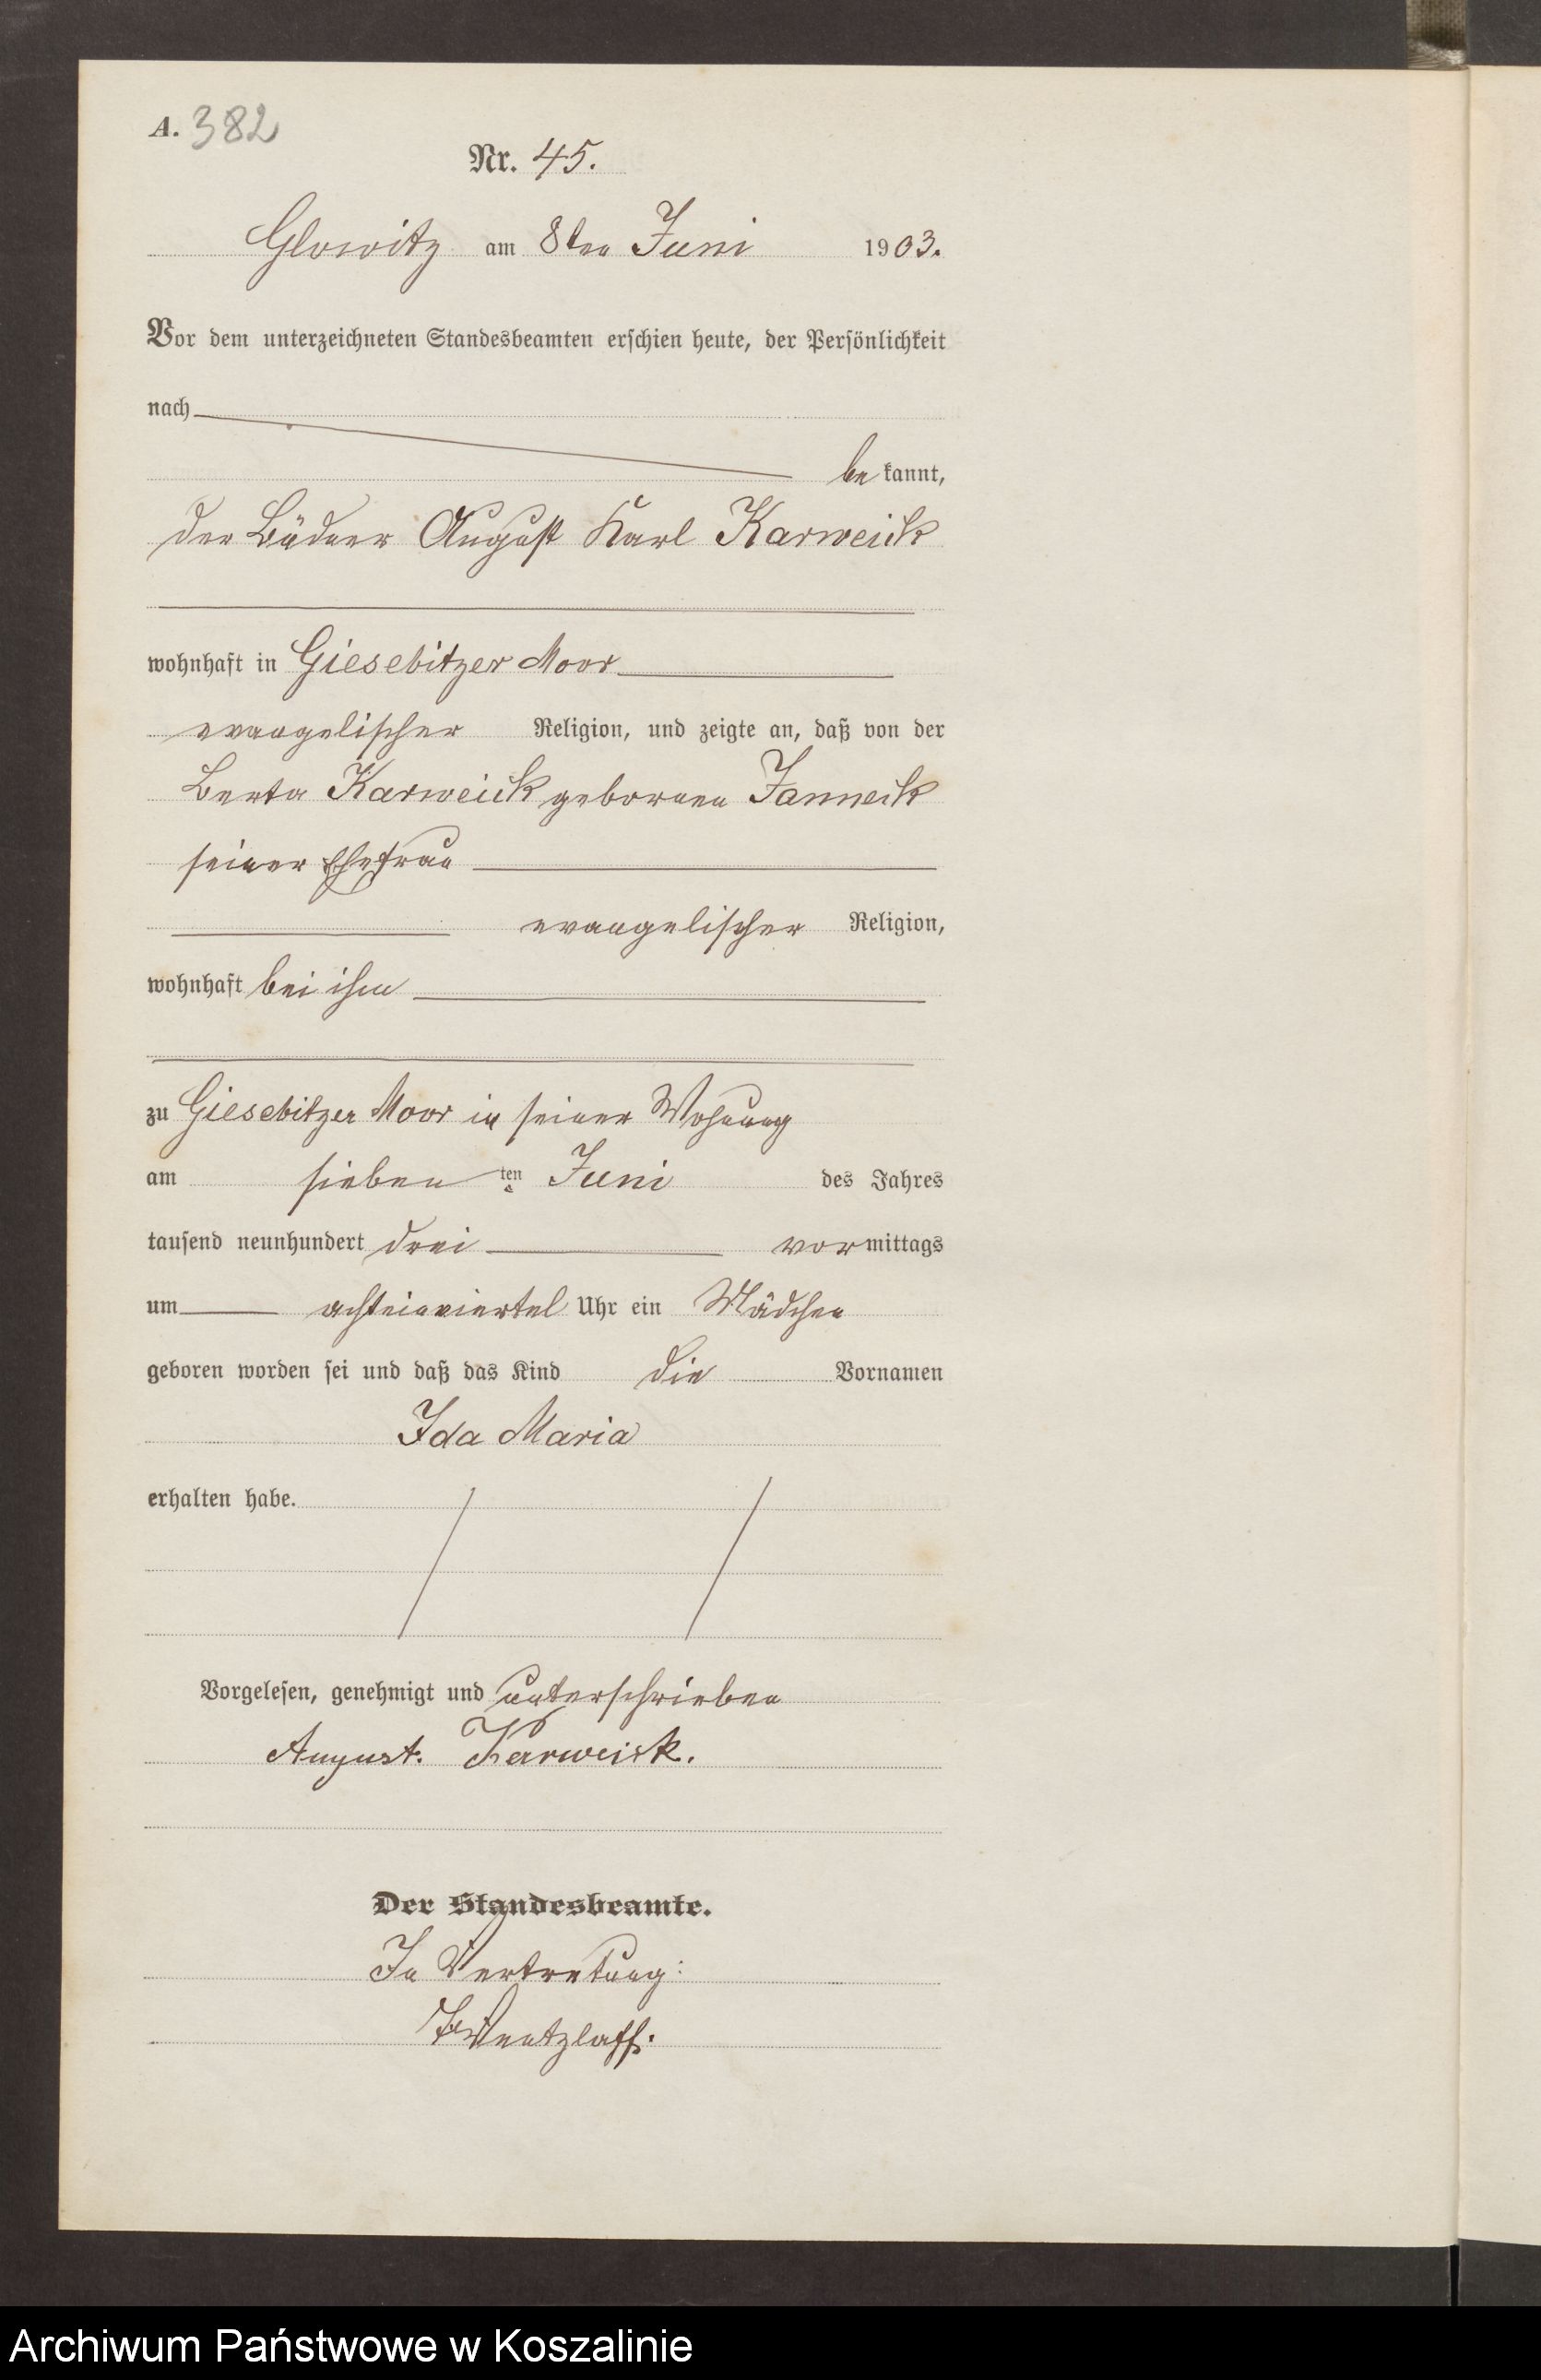 A. 382
Nr. 45.
Glowitz am 8ten Juni 1903.
Vor dem unterzeichneten Standesbeamten erschien heute, der Persönlichkeit
nach
be kannt,
der Büdner August Karl Karweick
wohnhaft in Giesebitzer Moor
evangelischer Religion, und zeigte an, daß von der
Berta Karweick geborenen Janneck
seiner Ehefrau
evangelischer Religion,
wohnhaft bei ihm
zu Giesebitzer Moor in seiner Wohnung
am sieben ten Juni des Jahres
tausend neunhundert drei vormittags
um achteinviertel Uhr ein Mädchen
geboren worden sei und daß das Kind die Vornamen
Ida Maria
erhalten habe.
Vorgelesen, genehmigt und unterschrieben
August. Karweick.
Der Standesbeamte.
In Vertretung:
Wentzlaff.
Archiwum Państwowe w Koszalinie